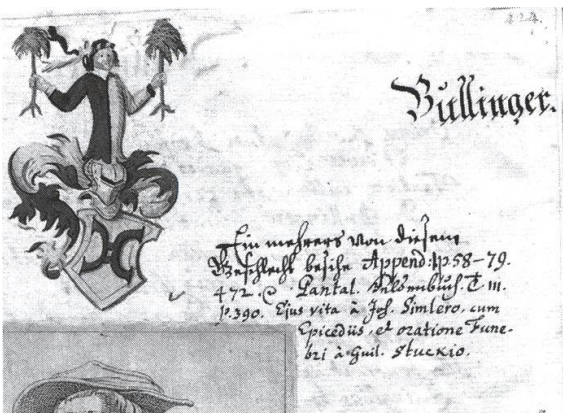 424.
Bullinger.
Ein mehrers von diesem
Geschlecht besihe Append: p. 58-79.
472. C Pantal. Heldenbuch. T. III.
p. 390. Ejus vita à Joh. Simlero. cum
Epicediis, et oratione Fune-
bri à Guil. Stuckio.